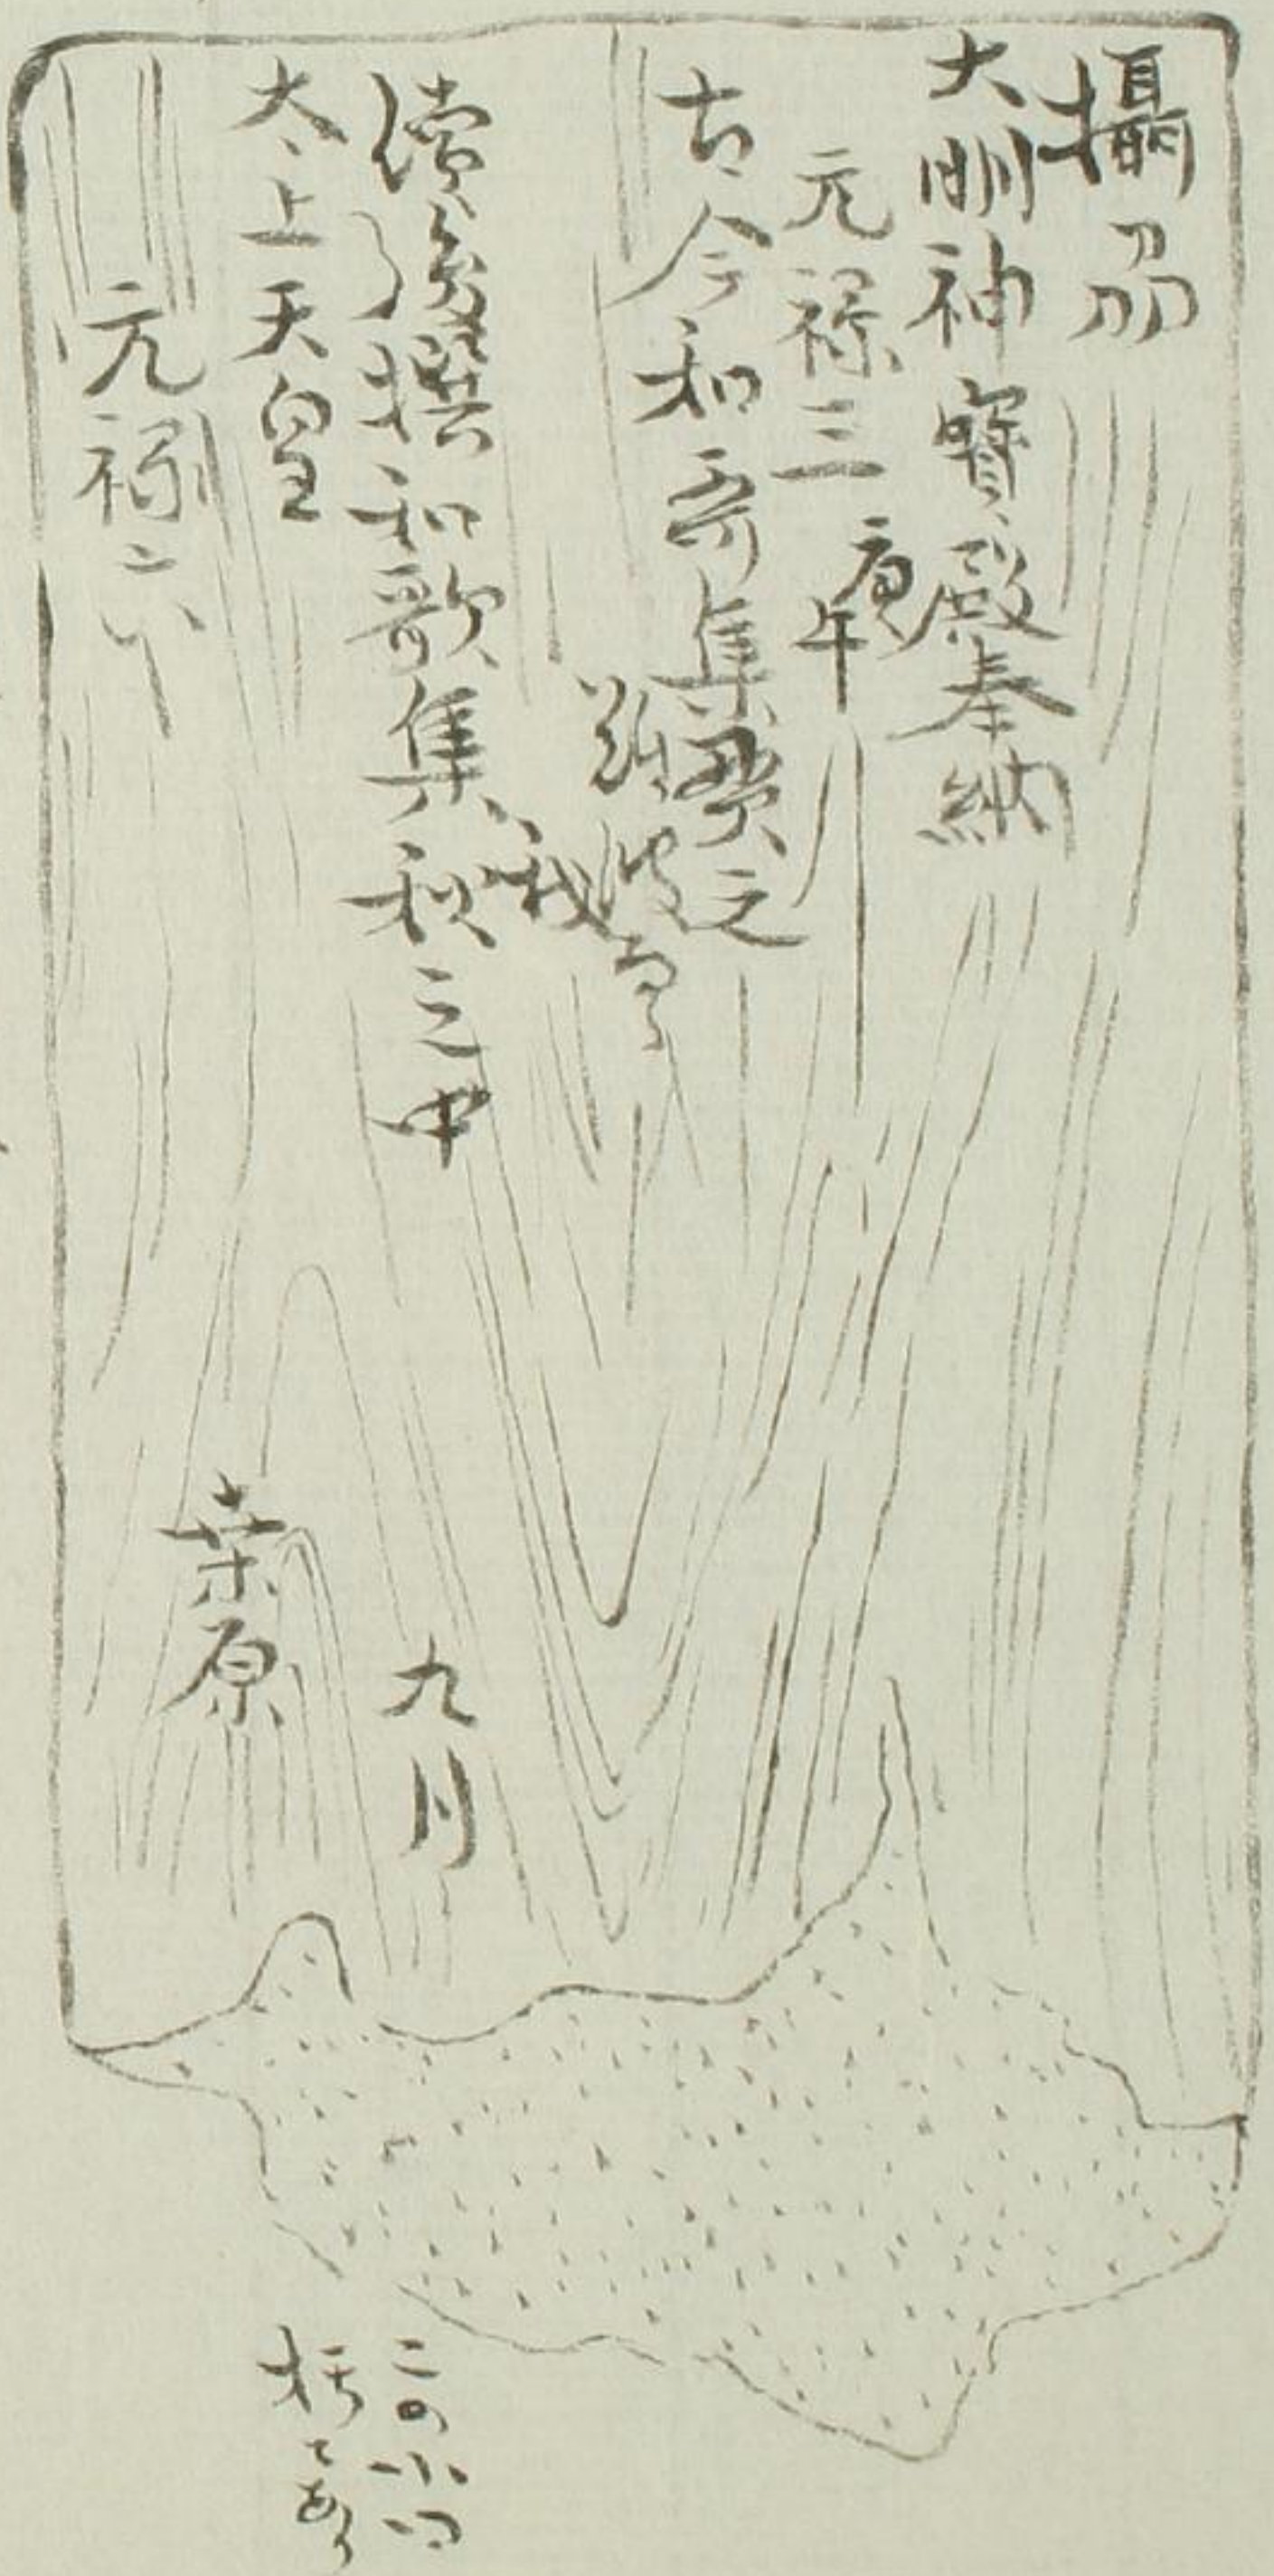 攝刕
大明神寶殿奉納
元禄三庚午
古今和哥集貫之
難波
我
續後撰和歌集秋之中
太上天皇
元禄六
九月
葉原
この小口
朽てある